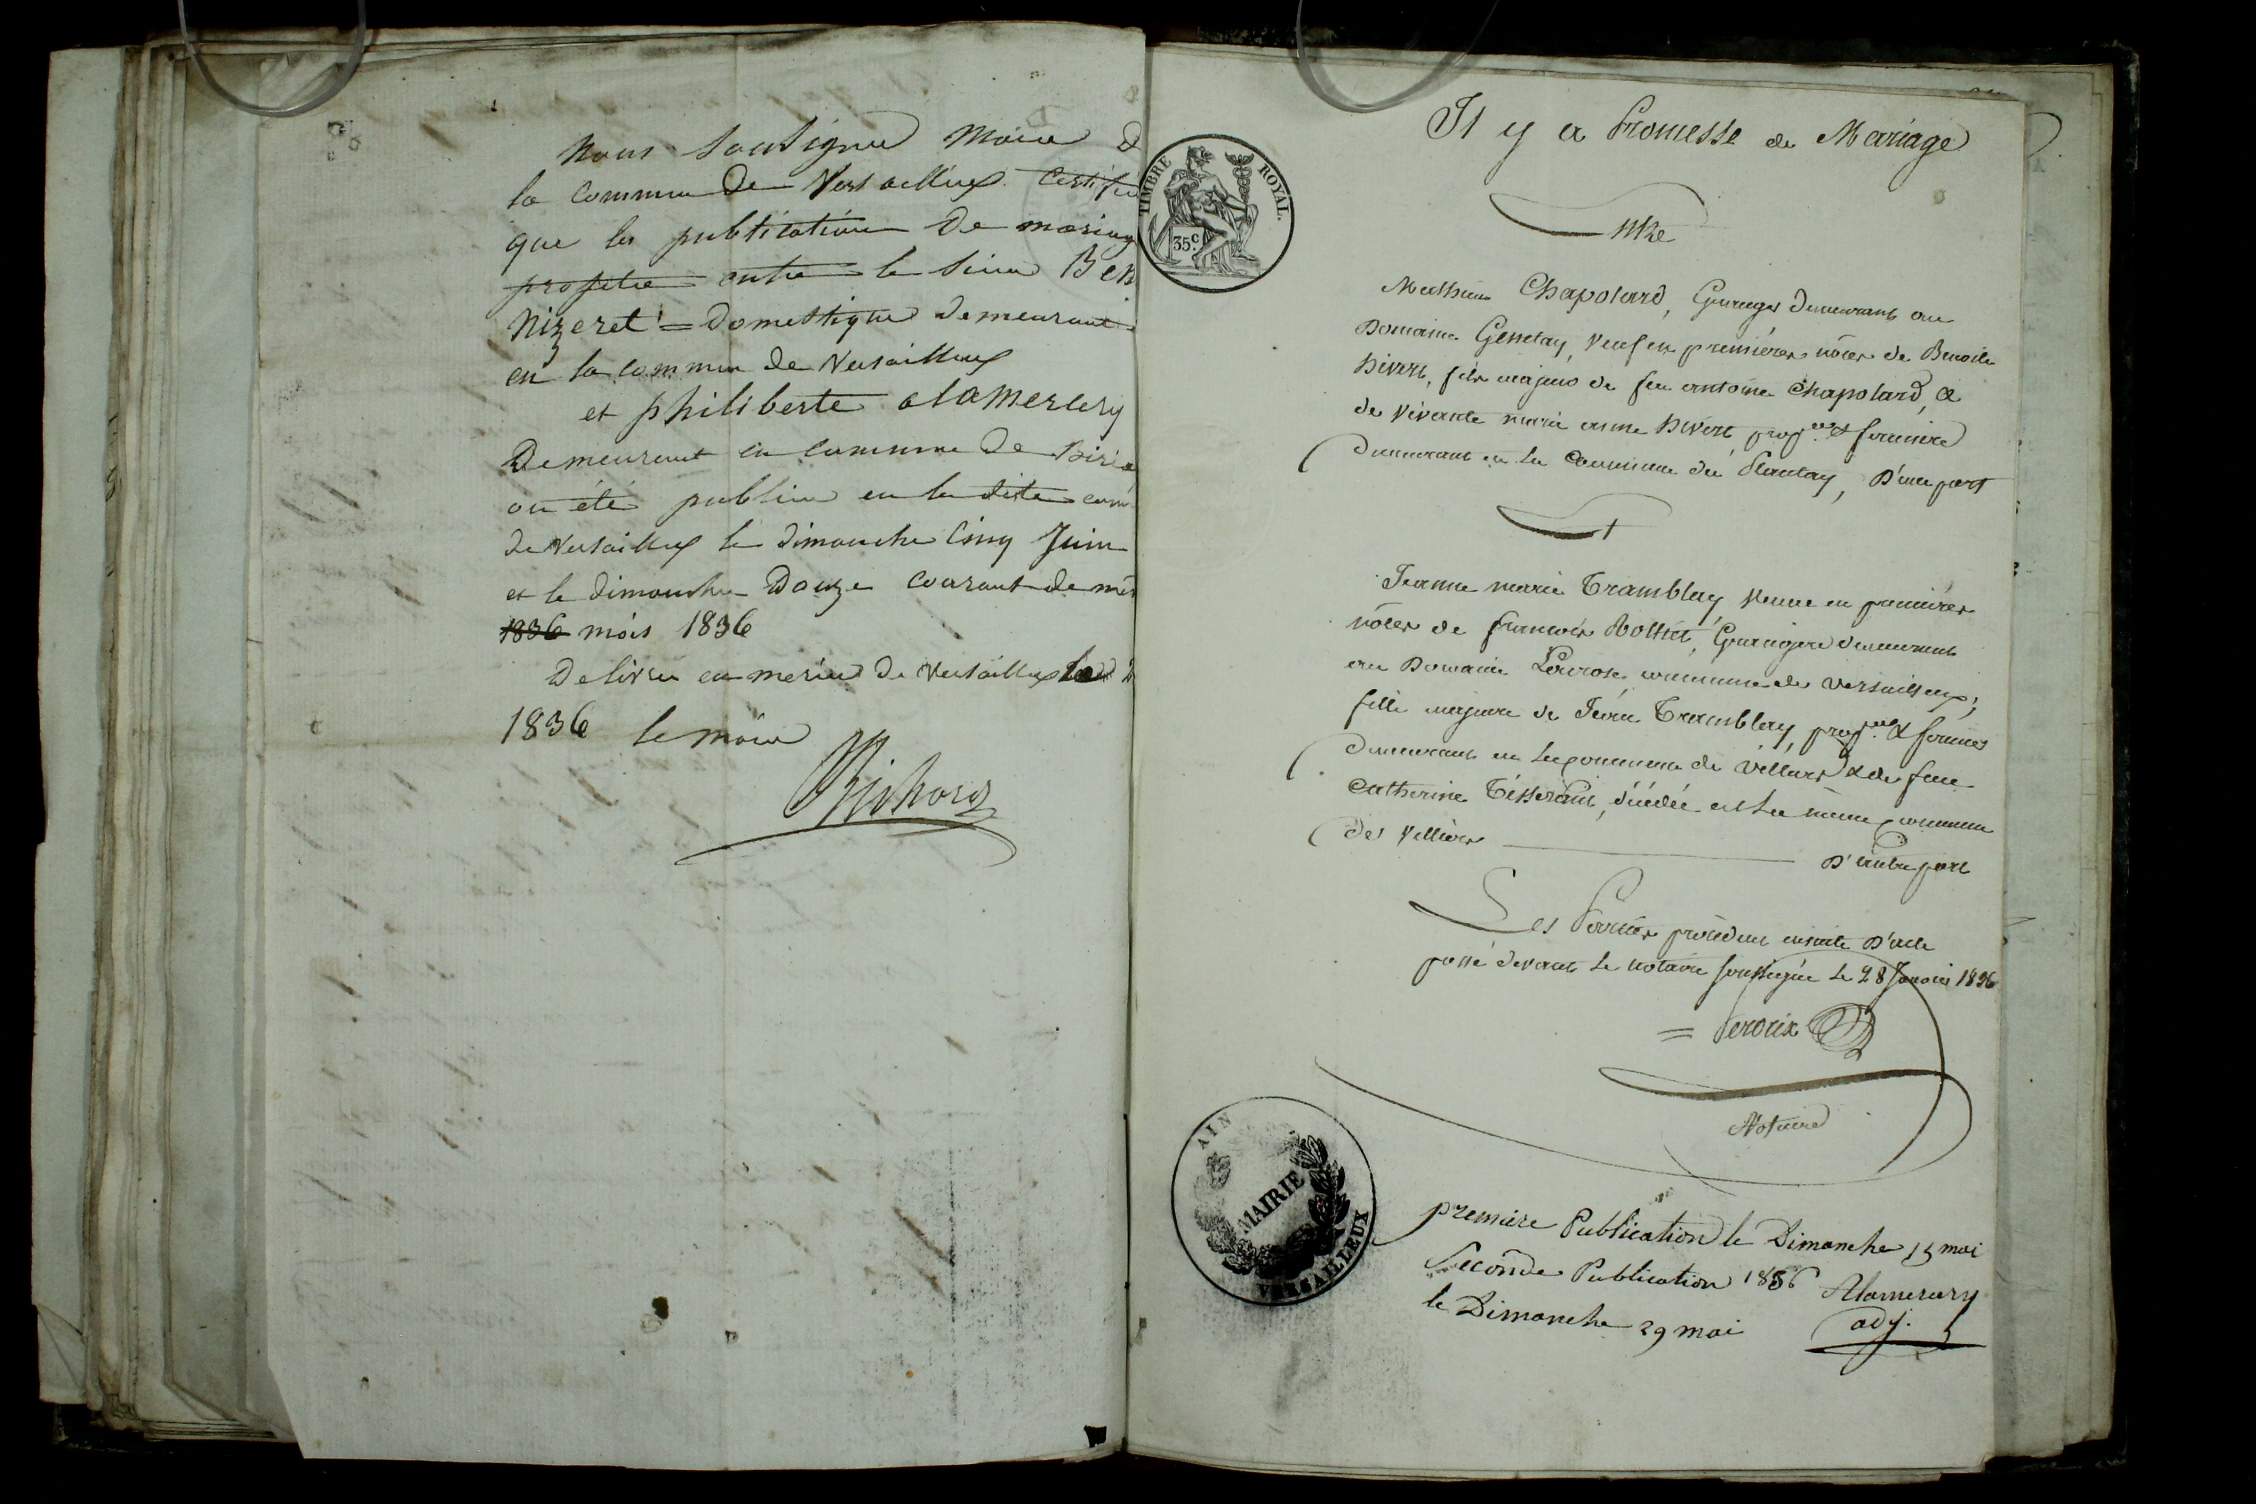 Nous Soussigné Maire D
la Commune De Versailleux Certifie
que les publications De mariag
projetée entre le Sieur Ben
Nizeret = Domestique Demeurant
en la commune de Versailleux
et philiberte alamercery
Demeurant en commune De Birie
on été publiée en la dite com
de Versailleux le dimanche Cinq Juin
et le dimanche Douze Courant de mê
1836 mois 1836
Delivré en merie De Versailleux le
1836 le maire
Richard
TIMBRE ROYAL.
35 c.
Il y a Promesse de Mariage
Entre
Mathieu Chapolard, Granger demeurant au
Domaine Genetay, veuf en premières nôces de Benoite
Divert, fils majeur de feu antoine Chapolard, &
de vivante marie anne Divert prop.re & fermière
demeurant en la Commune du Plantay, D'une part
&
Jeanne marie Tramblay, veuve en premières
nôces de françois Rollet, Grangère demeurant
au Domaine Larose commune de Versailleux,
fille majeure de Jean Tramblay, prop.re & fermier
demeurant en la commune de Villars & de feue
Catherine Tisserand, décédée en la même commune
de Villars D'autre part
Les Parties procèdent ensuite D'acte
passé devant le notaire soussigné le 28 Janvier 1836
= Peroux
Notaire
AIN
MAIRIE
VERSAILLEUX
premiere Publication le Dimanche 15 mai
Seconde Publication 1836 Alamercery
le Dimanche 29 mai adj.